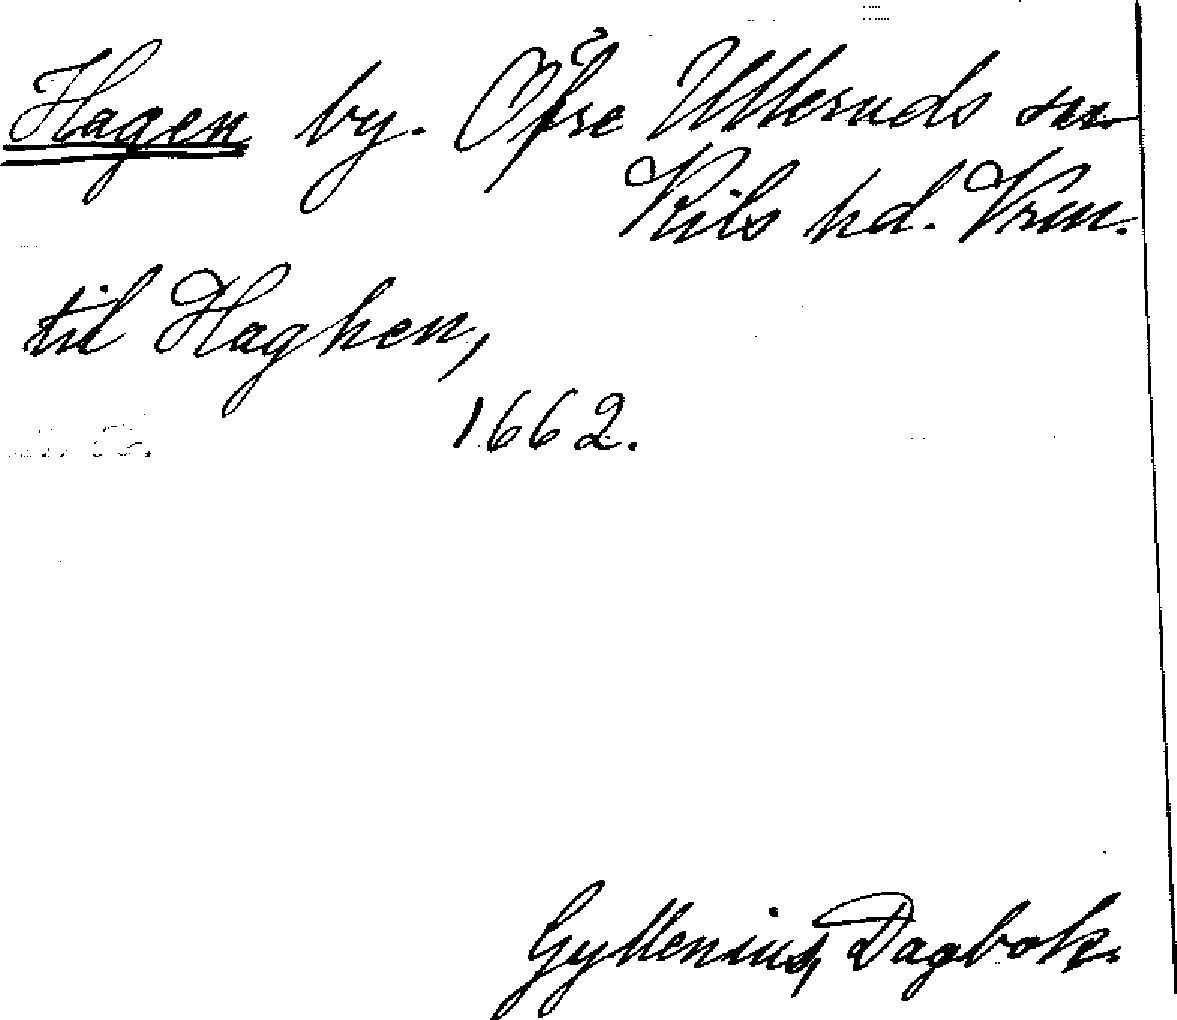 Hagen by. Öfre Ulleruds sn
Kils hd. Vrm.
til Haghen,
1662.
Gyllenius, Dagbok.